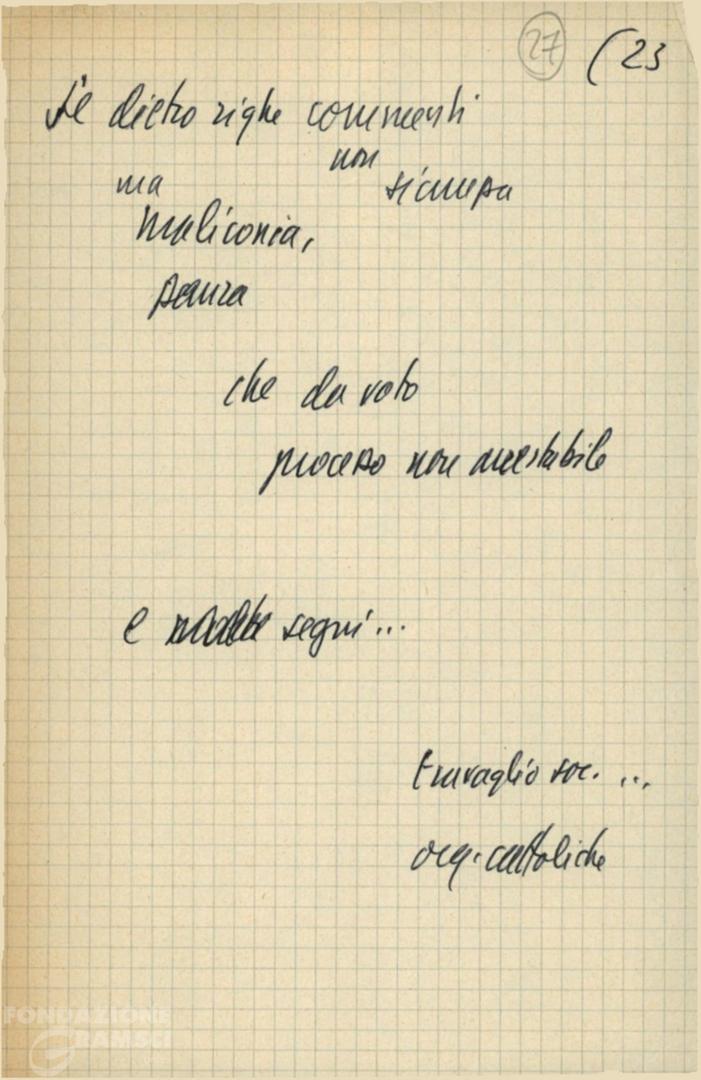 27 (23
Se dietro righe commenti
non
ma sicurezza
malinconia,
paura
che da voto
processo non arrestabile
e segni...
travaglio soc. ...
org. cattoliche
FONDAZIONE
GRAMSCI